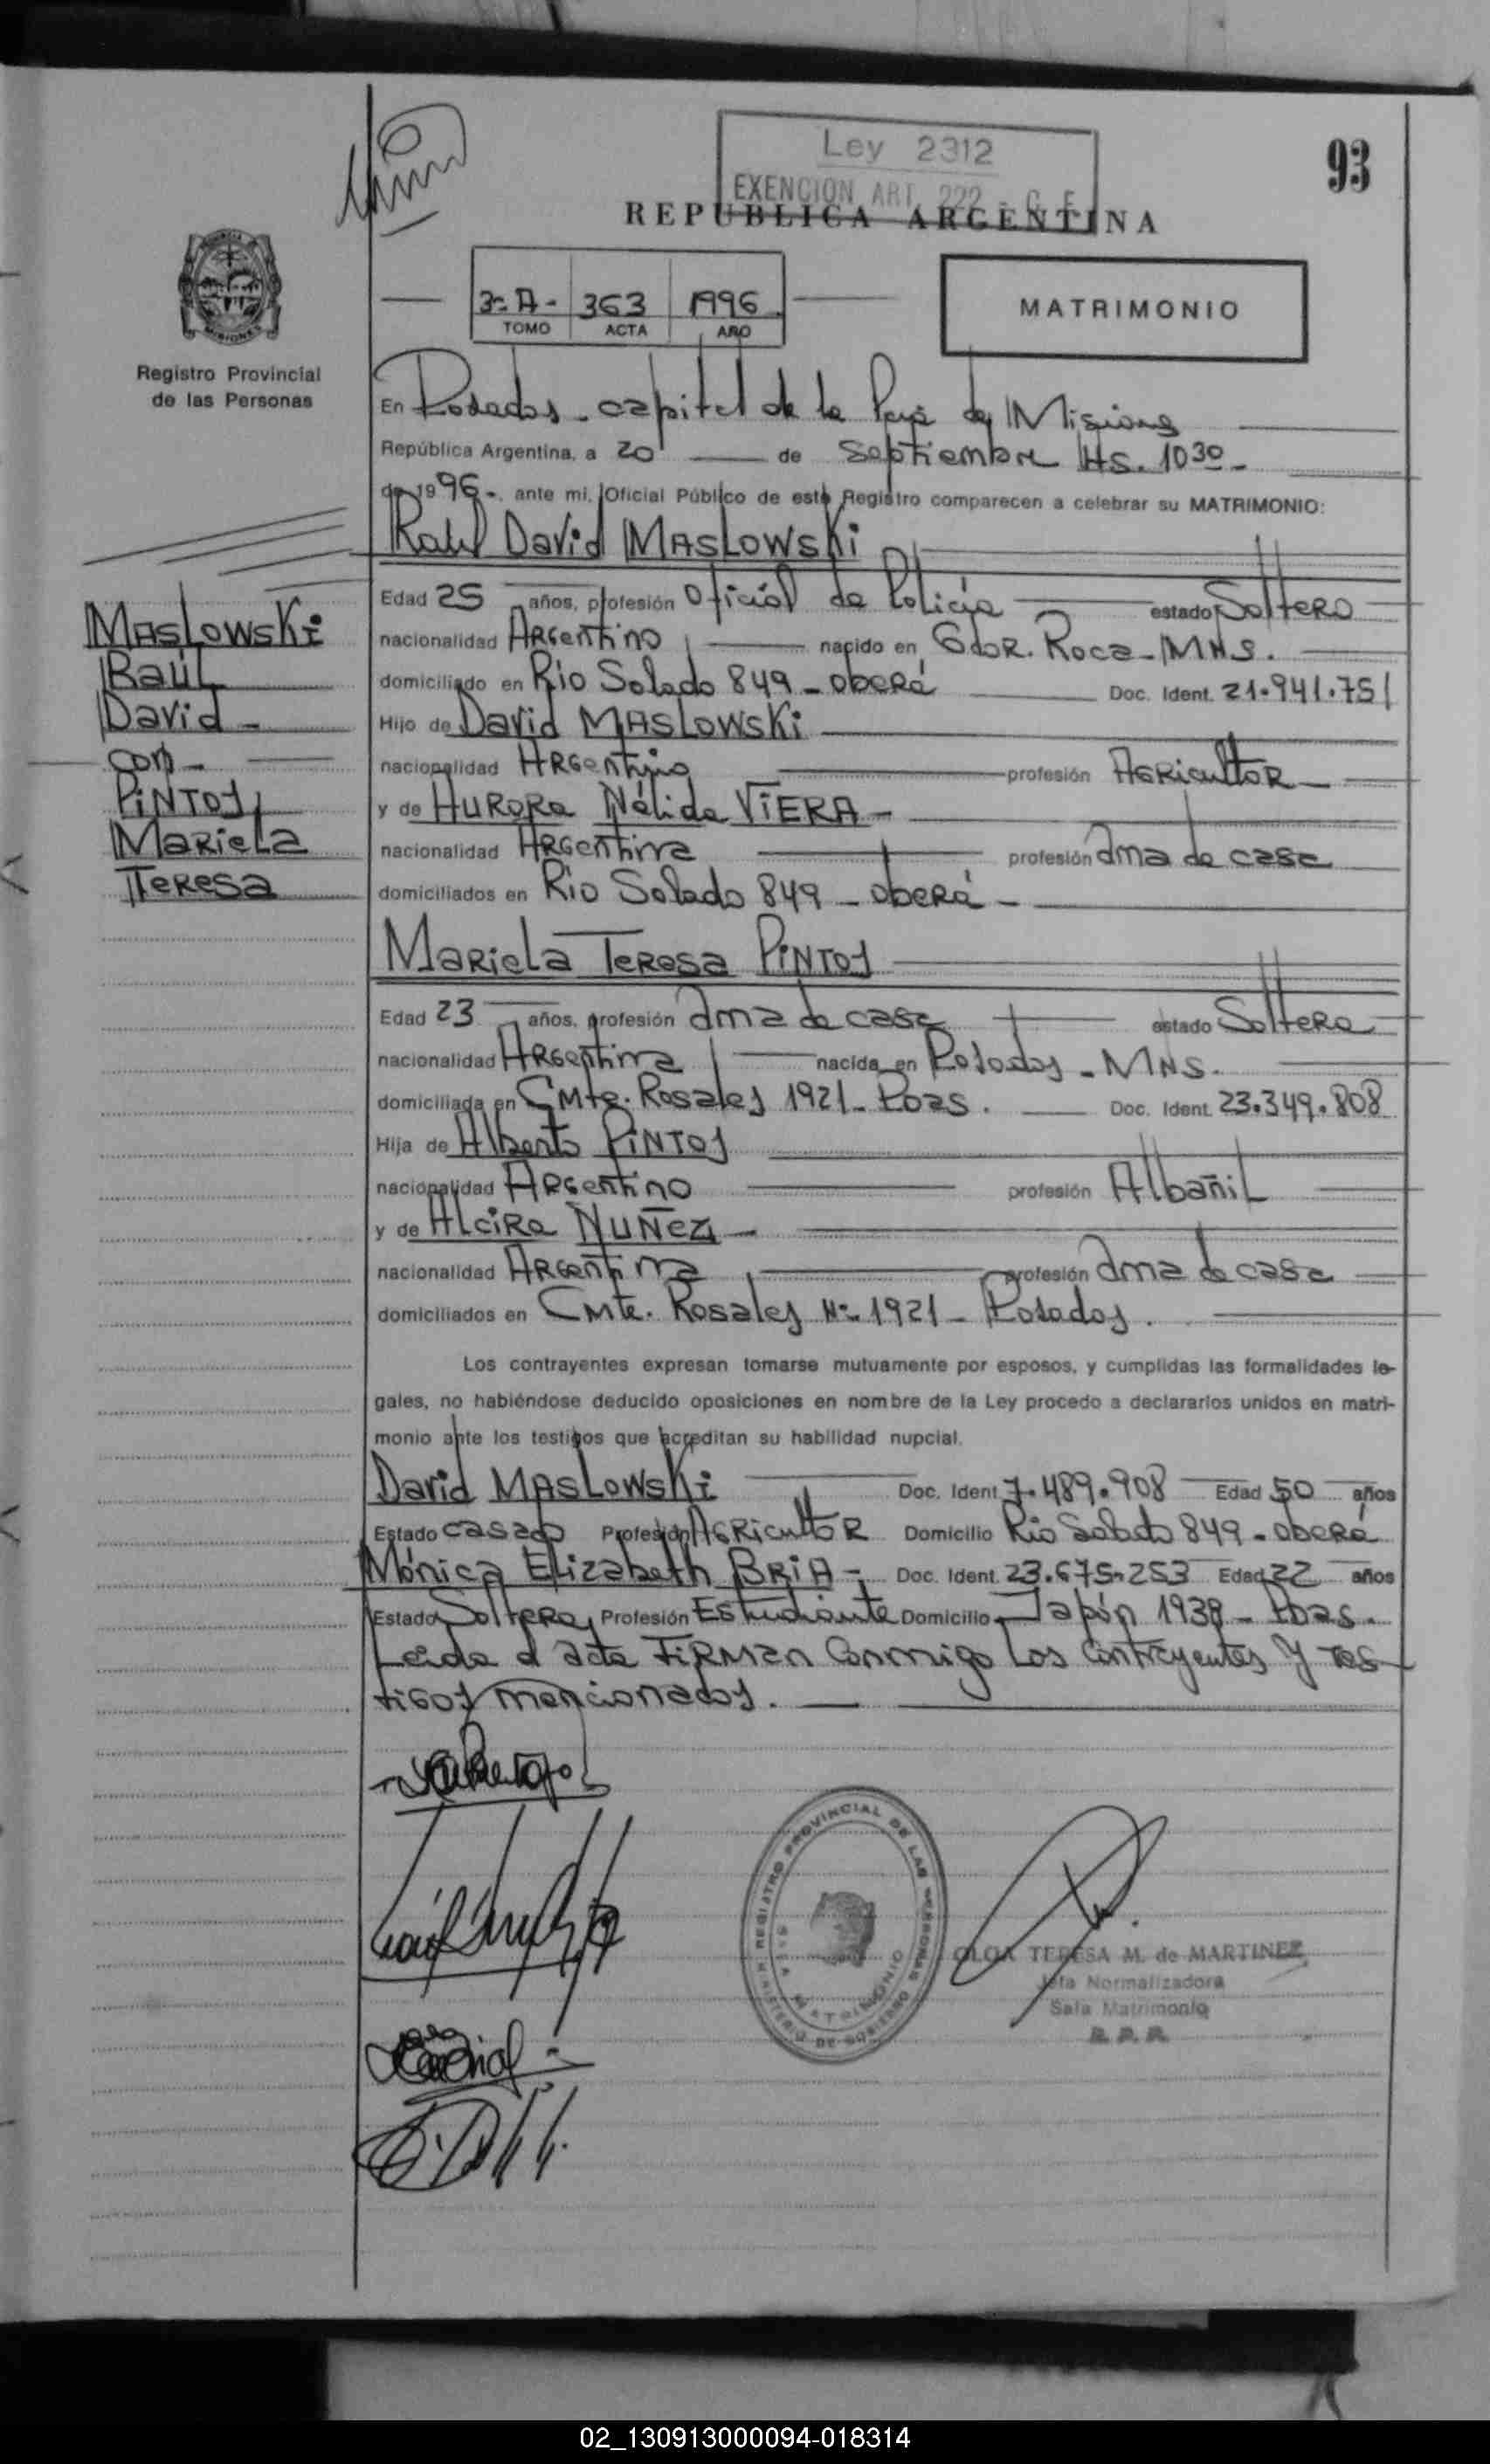 Ley 2312
EXENCION ART. 222 - C. F.
93
REPUBLICA ARGENTINA
3º A - 363 1996
TOMO ACTA AÑO
MATRIMONIO
MISIONES
Registro Provincial
de las Personas
En Posadas - capital de la Pcia de Misiones
República Argentina, a 20 de Septiembre Hs. 10 30 -
de 1996 -, ante mi, Oficial Público de este Registro comparecen a celebrar su MATRIMONIO:
Raúl David MASLOWSKi
Edad 25 años, profesión Oficial de Policía estado Soltero
nacionalidad Argentino nacido en Gdor. Roca - MNS.
domiciliado en Río Salado 849 - Oberá Doc. Ident. 21.941.751
Hijo de David MASLOWSKi
nacionalidad Argentino profesión Agricultor -
y de Aurora Nélida ViERA -
nacionalidad Argentina profesión ama de casa
domiciliados en Río Salado 849 - Oberá -
MASLOWSKi
Raúl
David -
con -
PiNTOS,
Mariela
Teresa
Mariela Teresa PiNTOS
Edad 23 años, profesión ama de casa estado Soltera
nacionalidad Argentina nacida en Posadas - MNS.
domiciliada en Cmte. Rosales 1921 - Pdas. Doc. Ident. 23.349.808
Hija de Alberto PiNTOS
nacionalidad Argentino profesión Albañil
y de Alcira NUÑEZ -
nacionalidad Argentina profesión ama de casa
domiciliados en Cmte. Rosales Nº 1921 - Posadas.
Los contrayentes expresan tomarse mutuamente por esposos, y cumplidas las formalidades le-
gales, no habiéndose deducido oposiciones en nombre de la Ley procedo a declararlos unidos en matri-
monio ante los testigos que acreditan su habilidad nupcial.
David MASLOWSKi Doc. Ident. 7.489.908 Edad 50 años
Estado casado Profesión Agricultor Domicilio Río Salado 849 - Oberá
Mónica Elizabeth BRiA - Doc. Ident. 23.675.253 Edad 22 años
Estado Soltera, Profesión Estudiante Domicilio Japón 1938 - Pdas.
Leída el acta firman conmigo los contrayentes y tes-
tigos mencionados.
REGISTRO PROVINCIAL DE LAS PERSONAS
MINISTERIO DE GOBIERNO
SALA MATRIMONIO
OLGA TERESA M. de MARTINEZ
Jefa Normalizadora
Sala Matrimonio
R. P. P.
02_130913000094-018314